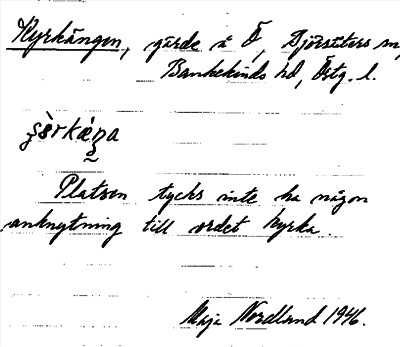 Kyrkängen, gärde å Ö, Djörsäters sn,
Bankekinds hd, Östg. l.
Platsen tycks inte ha någon
anknytning till ordet kyrka.
Maja Nordlund 1946.